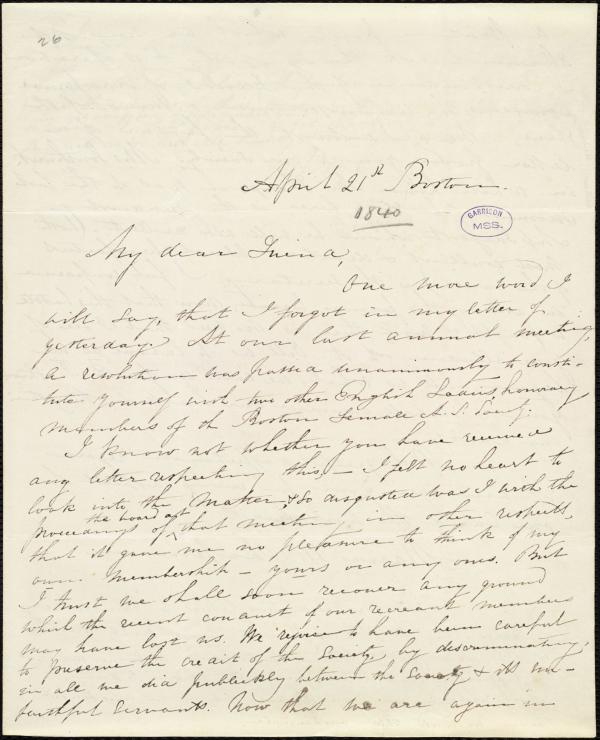 26
April 21st Boston.
1840
GARRISON
MSS.
My dear Friend,
One more word I
will say, that I forgot in my letter of
yesterday. At our last annual meeting,
a resolution was passed unanimously to consti-
tute yourself with two other English Ladies, honorary
members of the Boston Female A. S. Socy.
I know not whether you have received
any letter respecting this, – I felt no heart to
look into the matter, & so disgusted was I with the
proceedings of the board at that meeting in other respects,
that it gave me no pleasure to think of my
own membership – yours or any ones. But
I trust we shall soon recover any ground
which the recent conduct of our recreant members
may have lost us. We rejoice to have been careful
to preserve the credit of the Society by discriminating,
in all we did publickly between the Society & its un-
faithful servants. Now that we are again in